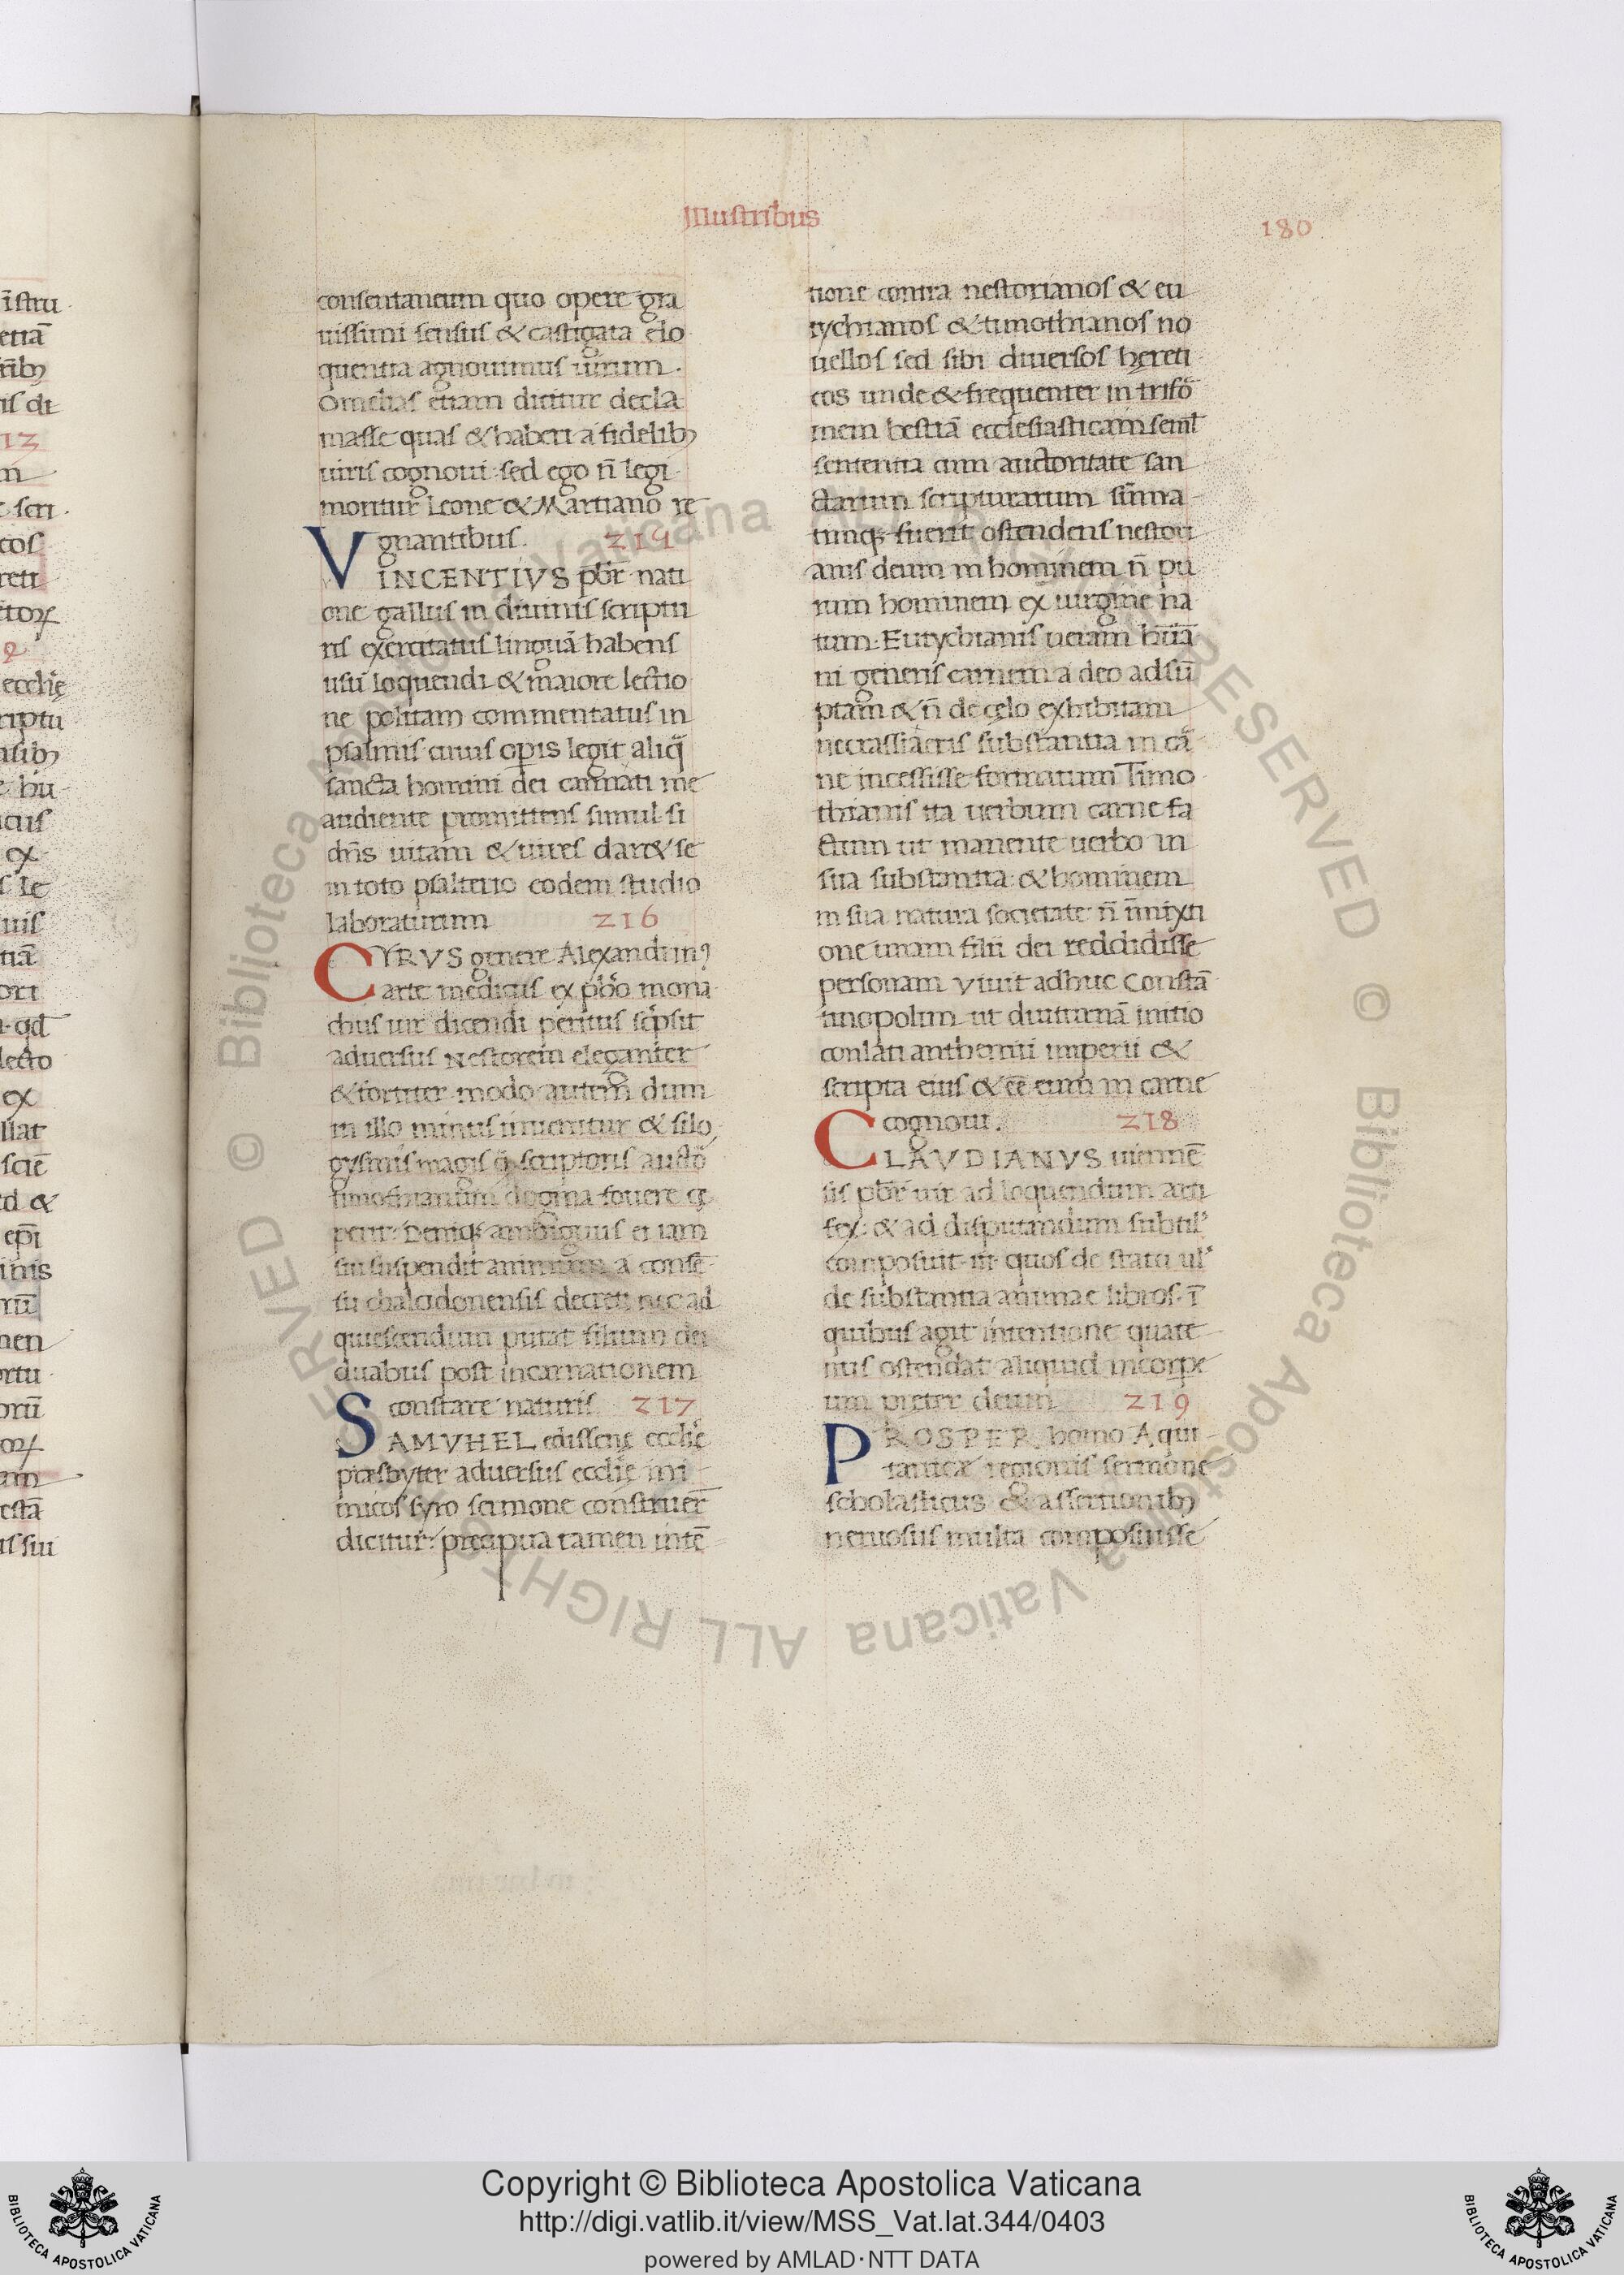 Illustribus
180
consentaneum quo opere gra
uissimi sensus & castigata elo
quentia agnouimus uirum.
Omelias etiam dicitur decla
masse quas & haberi a fidelibȝ
uiris cognoui sed ego n̄ legi
moritur Leone & Martiano re
gnantibus. 215
VINCENTIVS pbr̄ nati
one gallus in diuinis scriptu
ris exercitatus linguā habens
usū loquendi & maiore lectio
ne politam commentatus in
psalmis cuius opis legit aliq̄
sancta homini dei cannati me
audiente promittens simul si
dn̄s uitam & uires dar& se
in toto psalterio eodem studio
laboraturum 216
CYRVS genere Alexandrinꝰ
arte medicus ex pħo mona
chus uir dicendi peritus scͥpsit
aduersus Nestorem eleganter
& fortiter modo autem dum
in illo minus inuenitur & silo
gysmis magis q̄ scriptoris auctō
timothianum dogma fouere cę
perit. Deniqꝫ ambiguus et iam
sui suspendit animum a consē
su chalcidonensis decreti nec ad
quiescendum putat filium dei
duabus post incarnationem
constare naturis 217
SAMVHEL edissenę ecclīę
præsbyter aduersus ecclīę ini
micos syro sermone construer̄
dicitur: precipua tamen intē
tione contra nestorianos & eu
tychianos & timothianos no
uellos sed sibi diuersos hereti
cos unde & frequenter in trifō
mem bestiā ecclesiasticam seml̄
sententia cum auctoritate san
ctarum scripturarum sūma
timqꝫ fuerit ostendens nestori
anis deum in hominem n̄ pu
rum hominem ex uirgine na
tum. Eutychianis ueram hūa
ni generis carnem a deo adsū
ptam & n̄ de cęlo exhibitam
nec crassi aeris substantia in cā
ne incessisse formatum Timo
thianis ita uerbum carne fa
ctum ut manente uerbo in
sua substantia & hominem
in sua natura societate n̄ īmixti
one unam filii dei reddidisse
personam Viuit adhuc Constā
tinopolim ut diuturnā initio
conlati anthemii imperii &
scripta eius & eē eum in carne
cognoui. 218
CLAVDIANVS uiennē
sis pbr̄ uir ad loquendum arti
fex: & ad disputandum subtilꝰ
composuit iii quos de statu ulꝰ
de substantia animae libros ī
quibus agit intentione quate
nus ostendat aliquid incorpe
um preter deum 219
PROSPER. homo Aqui
tanicæ regionis sermone
scholasticus & assertionibȝ
neruosus multa composuisse
Copyright © Biblioteca Apostolica Vaticana
http://digi.vatlib.it/view/MSS_Vat.lat.344/0403
powered by AMLAD·NTT DATA
BIBLIOTECA APOSTOLICA VATICANA
BIBLIOTECA APOSTOLICA VATICANA